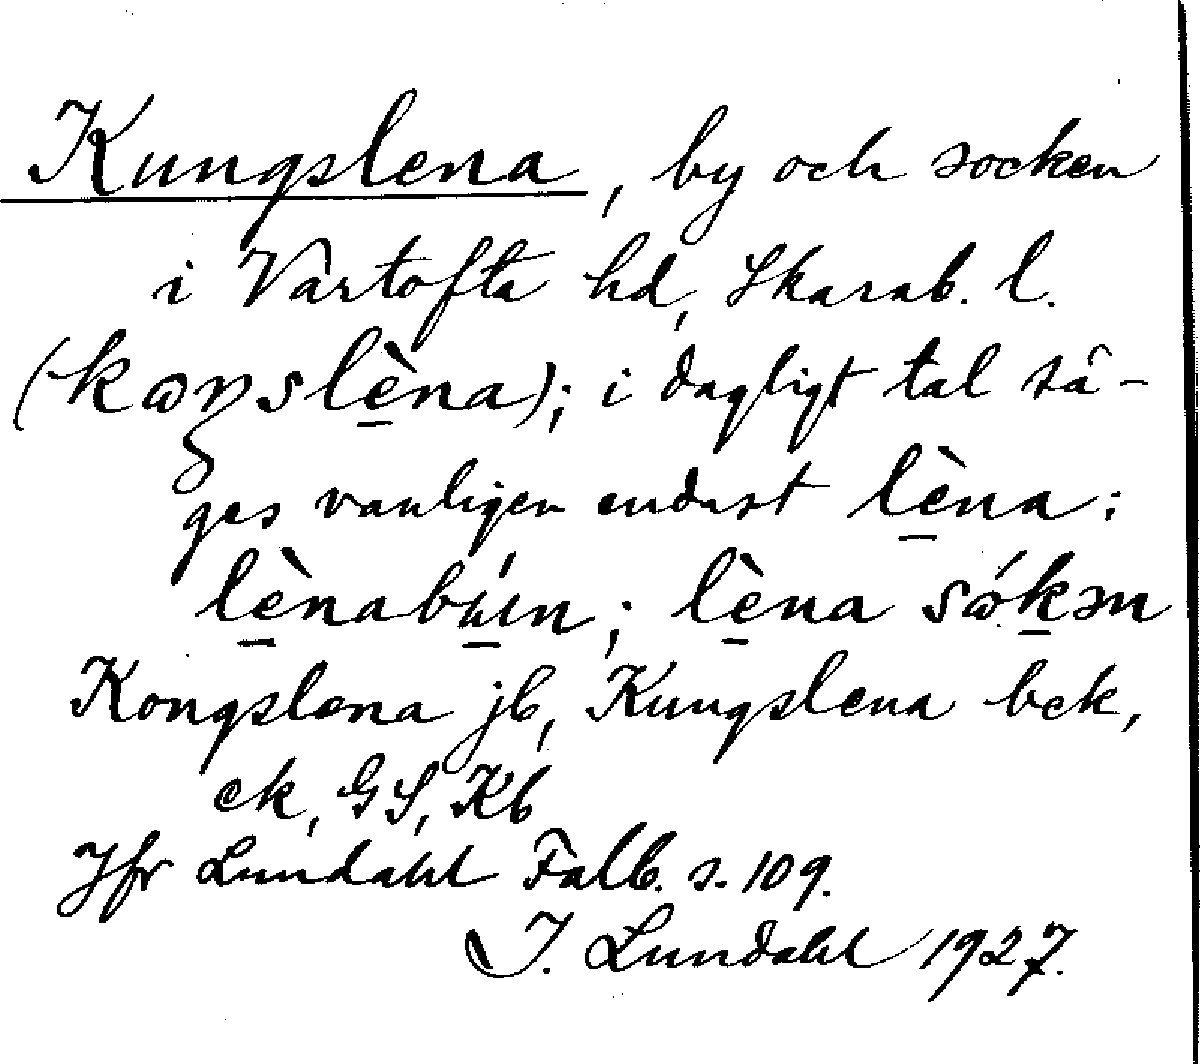 Kungslena, by och socken
i Vartofta hd, Skarab. l.
(kωŋslè̠na); i dagligt tal sä-
ges vanligen endast lè̠na:
lè̠nabý̠ın; lè̠na sώk̠ən
Kongslena jb, Kungslena bck,
ck, GS, Kb
Jfr Lundahl Falb. s. 109.
I. Lundahl 1927.